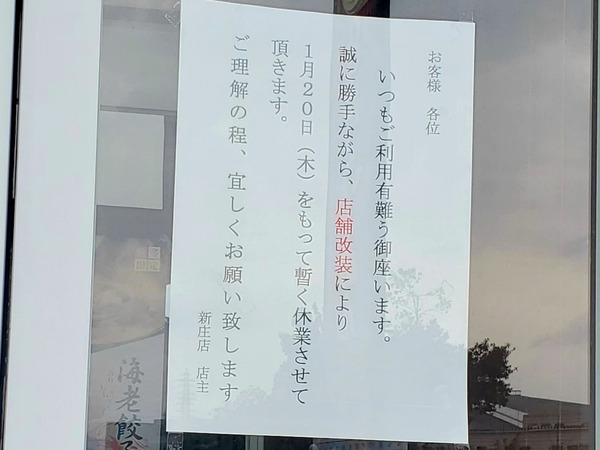 お客様 各位
いつもご利用有難う御座います。
誠に勝手ながら、店舗改装により
1月20日（木）をもって暫く休業させて
頂きます。
ご理解の程、宜しくお願い致します
新庄店 店主
海老餃子